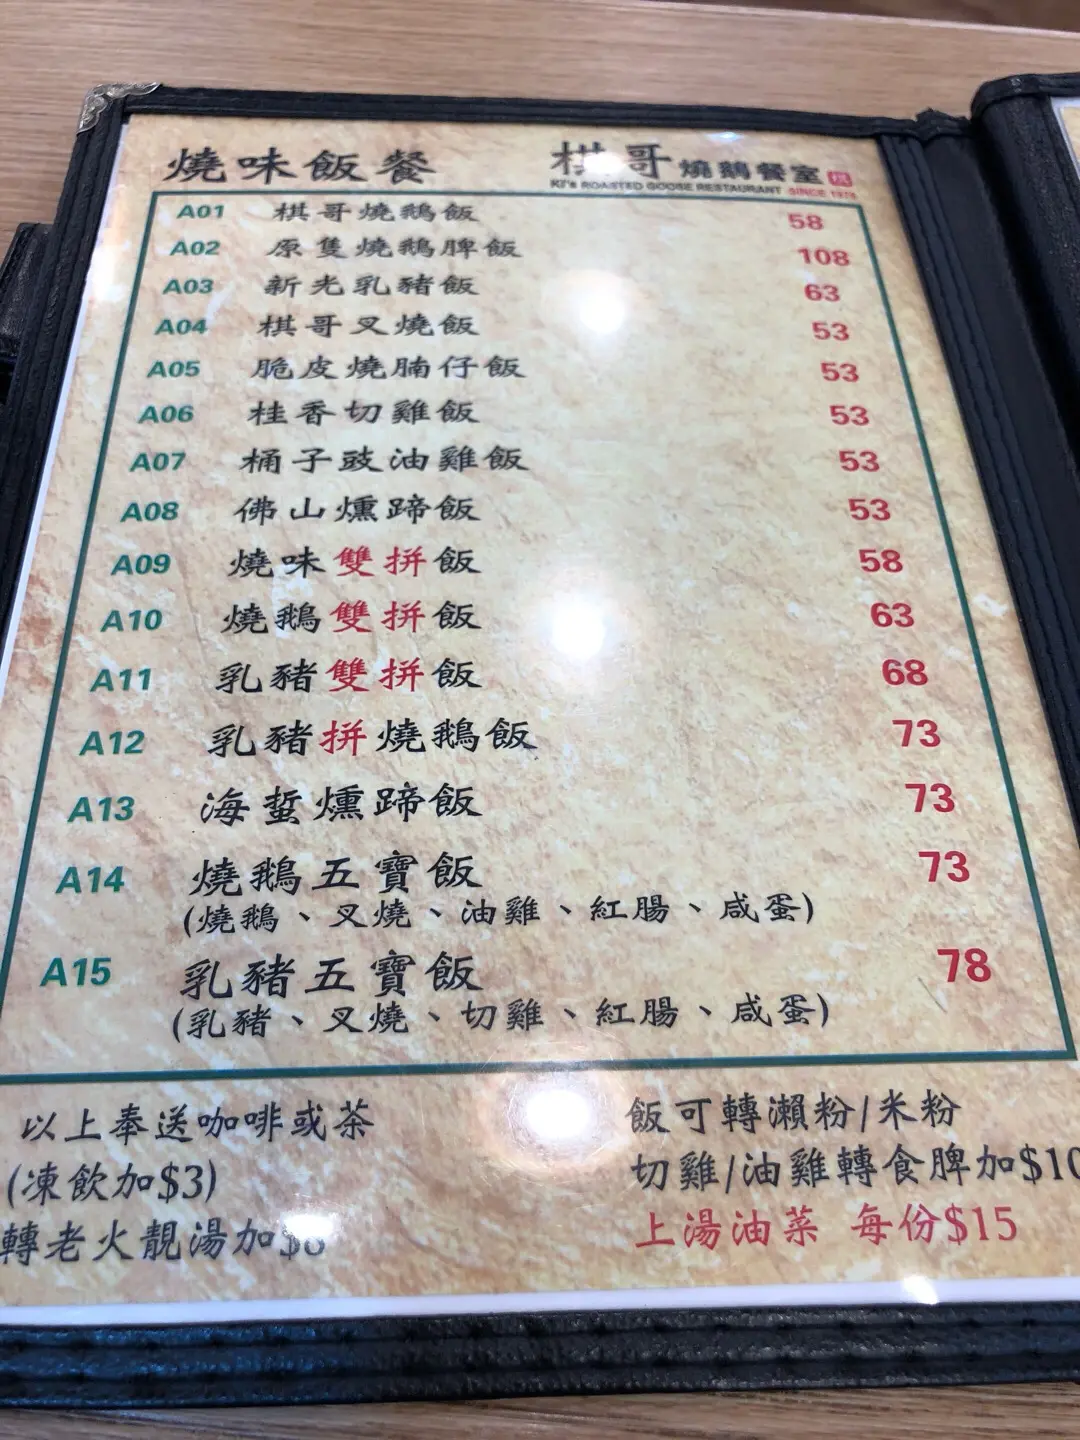 燒味飯餐
棋哥燒鵝餐室
KJ's ROASTED GOOSE RESTAURANT SINCE 1978
A01 棋哥燒鵝飯 58
A02 原隻燒鵝脾飯 108
A03 新光乳豬飯 63
A04 棋哥叉燒飯 53
A05 脆皮燒腩仔飯 53
A06 桂香切雞飯 53
A07 桶子豉油雞飯 53
A08 佛山燻蹄飯 53
A09 燒味雙拼飯 58
A10 燒鵝雙拼飯 63
A11 乳豬雙拼飯 68
A12 乳豬拼燒鵝飯 73
A13 海蜇燻蹄飯 73
A14 燒鵝五寶飯 73
(燒鵝、叉燒、油雞、紅腸、咸蛋)
A15 乳豬五寶飯 78
(乳豬、叉燒、切雞、紅腸、咸蛋)
以上奉送咖啡或茶
(凍飲加$3)
轉老火靚湯加
飯可轉瀨粉/米粉
切雞/油雞轉食脾加$10
上湯油菜 每份$15